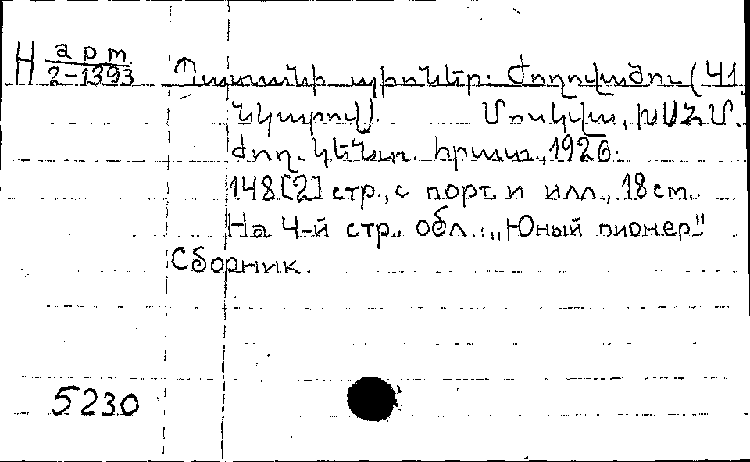 Н арт 2-1393
Պատանի պիոներ: Ժողովածու (41
նկարով). Մոսկվա, ԽՍՀՄ.
ժող. կենտ. հրատ., 1926.
148[2] стр., с порт. и илл., 18 см.
На 4-й стр. обл.: „Юный пионер"
Сборник.
5230